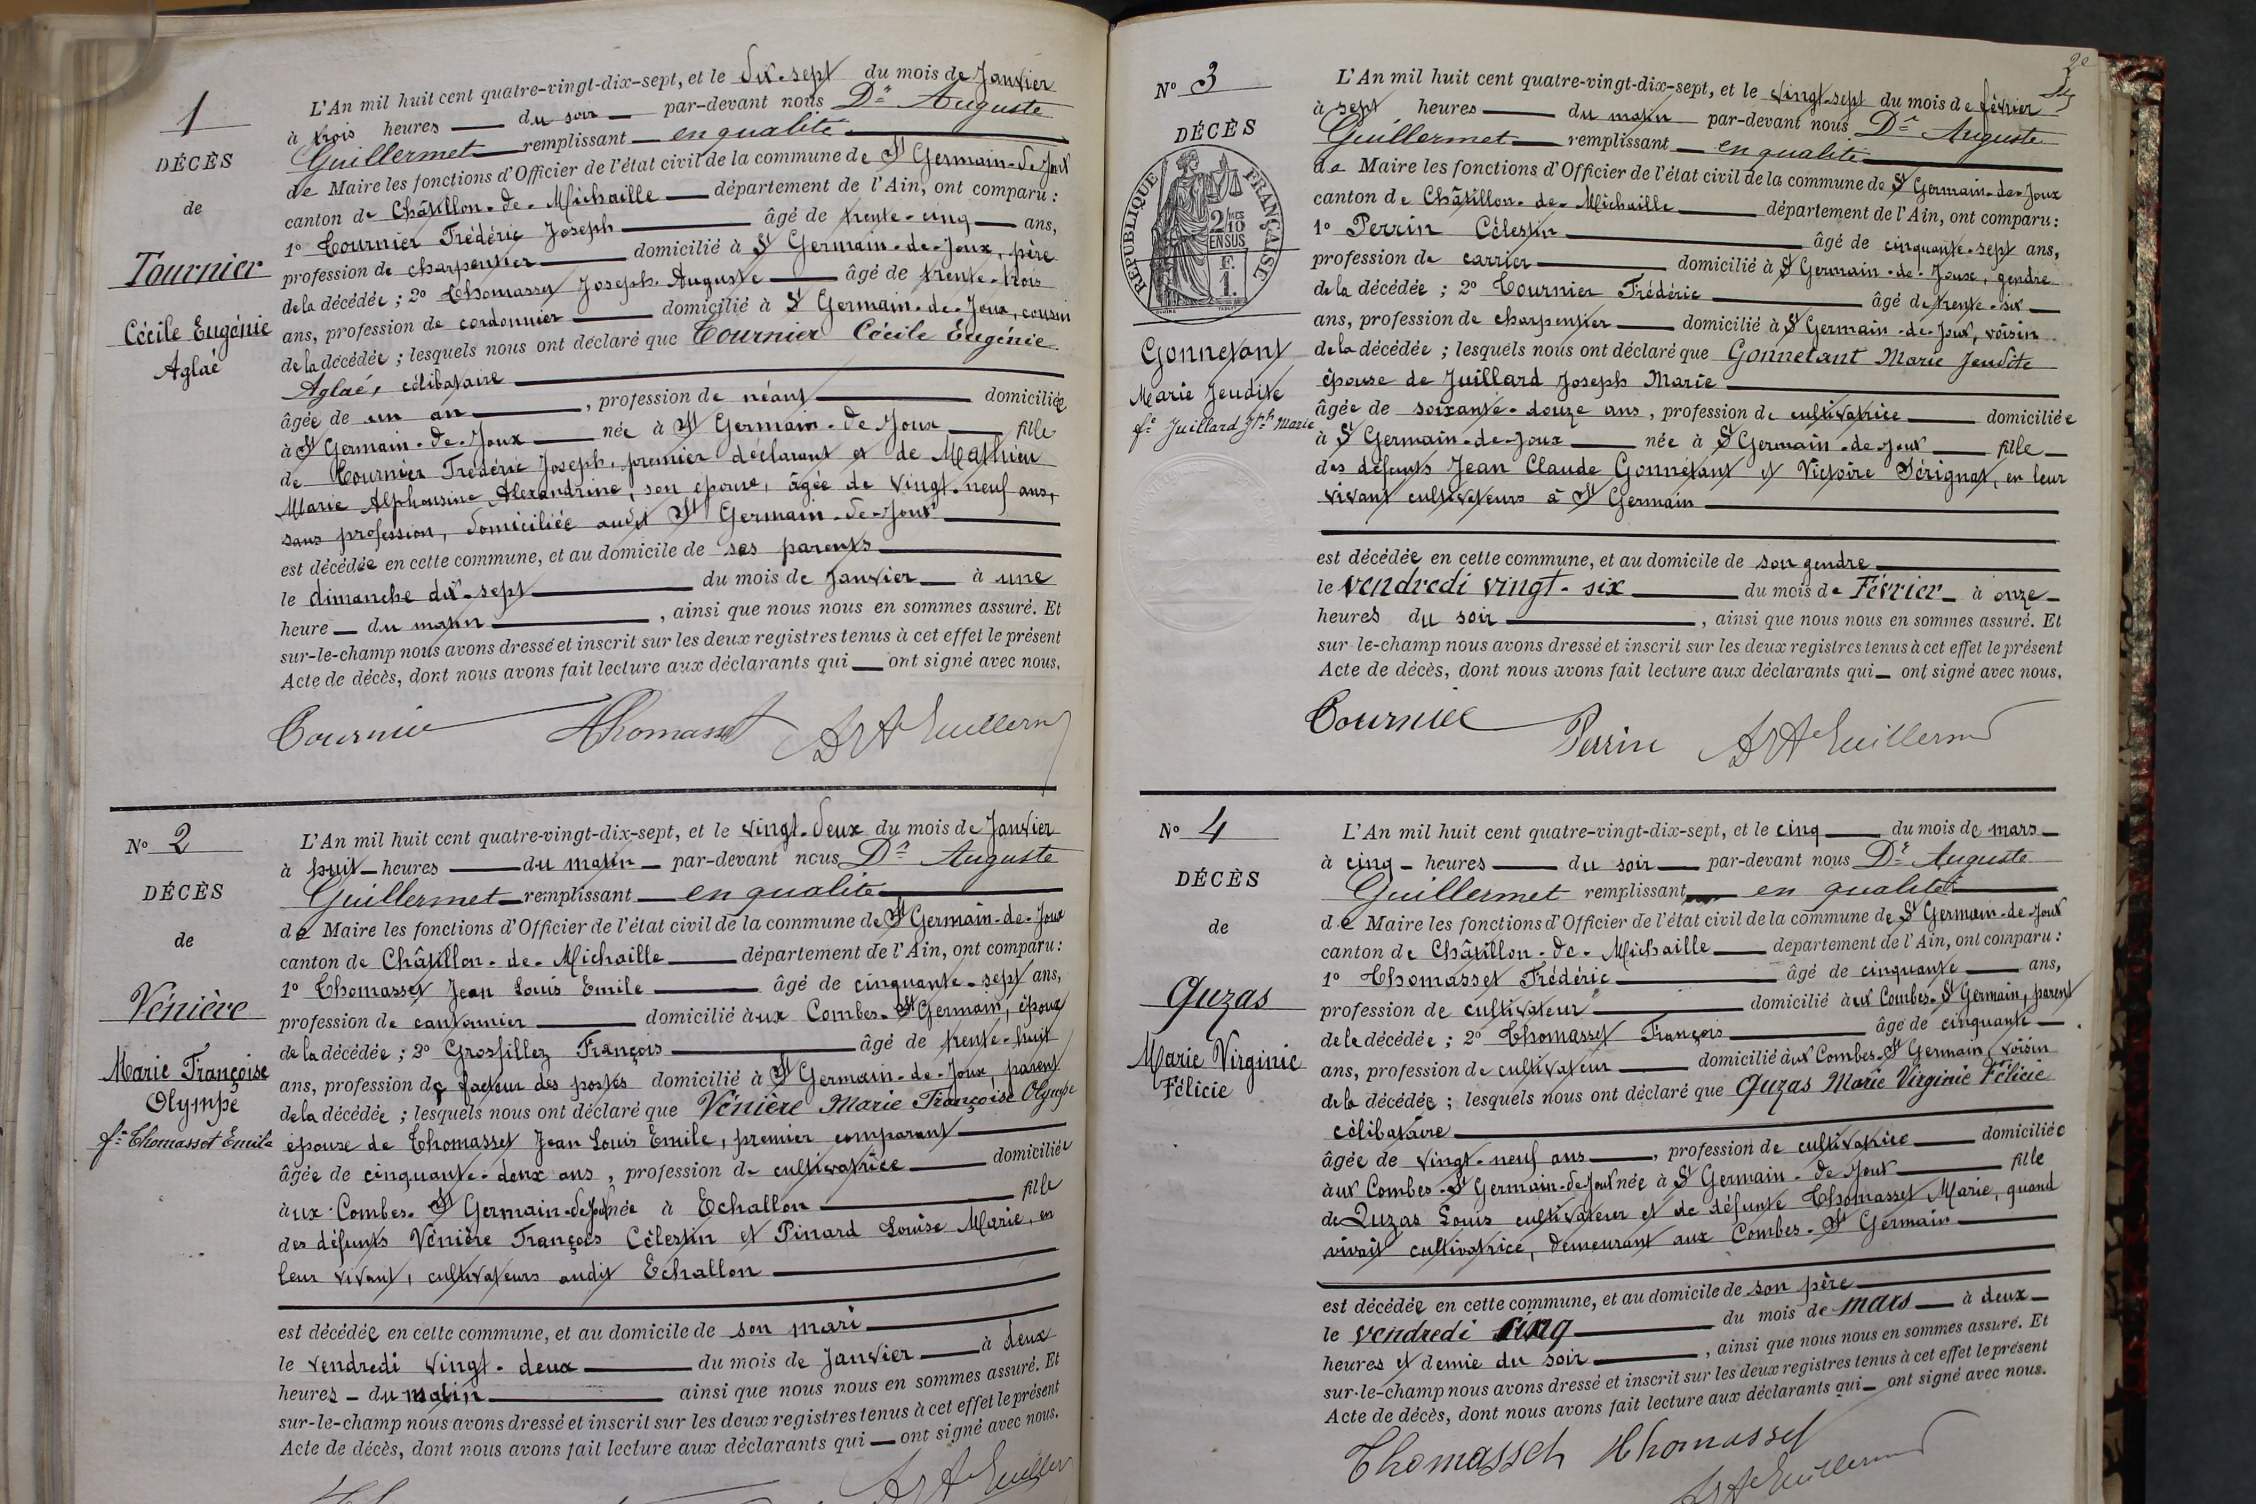 1
DÉCÈS
de
Tournier
Cécile Eugénie
Aglaé
L'An mil huit cent quatre-vingt-dix-sept, et le dix-sept du mois de Janvier
à trois heures du soir par-devant nous Dr Auguste
Guillermet remplissant en qualité
de Maire les fonctions d'Officier de l'état civil de la commune de St Germain-de-Joux
canton de Châtillon-de-Michaille département de l'Ain, ont comparu :
1o Tournier Frédéric Joseph âgé de trente-cinq ans,
profession de charpentier domicilié à St Germain-de-Joux, père
de la décédée ; 2o Thomasset Joseph Auguste âgé de trente-trois
ans, profession de cordonnier domicilié à St Germain-de-Joux, cousin
de la décédée ; lesquels nous ont déclaré que Tournier Cécile Eugénie
Aglaé, célibataire
âgée de un an, profession de néant domiciliée
à St Germain-de-Joux née à St Germain-de-Joux fille
de Tournier Frédéric Joseph, premier déclarant et de Mathieu
Marie Alphonsine Alexandrine, son épouse, âgée de vingt-neuf ans,
sans profession, domiciliée audit St Germain-de-Joux
est décédée en cette commune, et au domicile de ses parents
le dimanche dix-sept du mois de Janvier à une
heure du matin, ainsi que nous nous en sommes assuré. Et
sur-le-champ nous avons dressé et inscrit sur les deux registres tenus à cet effet le présent
Acte de décès, dont nous avons fait lecture aux déclarants qui ont signé avec nous.
Tournier Thomasset Dr Ate Guillermet
No 2
DÉCÈS
de
Vénière
Marie Françoise
Olympe
fe Thomasset Emile
L'An mil huit cent quatre-vingt-dix-sept, et le vingt-deux du mois de Janvier
à huit heures du matin par-devant nous Dr Auguste
Guillermet remplissant en qualité
de Maire les fonctions d'Officier de l'état civil de la commune de St Germain-de-Joux
canton de Châtillon-de-Michaille département de l'Ain, ont comparu :
1o Thomasset Jean Louis Emile âgé de cinquante-sept ans,
profession de cantonnier domicilié aux Combes-St Germain, époux
de la décédée ; 2o Grosfillez François âgé de trente-huit
ans, profession de facteur des postes domicilié à St Germain-de-Joux, parent
de la décédée ; lesquels nous ont déclaré que Vénière Marie Françoise Olympe
épouse de Thomasset Jean Louis Emile, premier comparant
âgée de cinquante-deux ans, profession de cultivatrice domiciliée
aux Combes-St Germain-de-Joux née à Echallon fille
des défunts Vénière François Célestin et Pinard Louise Marie, en
leur vivant, cultivateurs audit Echallon
est décédée en cette commune, et au domicile de son mari
le vendredi vingt-deux du mois de Janvier à deux
heures du matin ainsi que nous nous en sommes assuré. Et
sur-le-champ nous avons dressé et inscrit sur les deux registres tenus à cet effet le présent
Acte de décès, dont nous avons fait lecture aux déclarants qui ont signé avec nous.
Dr Ate Guiller
No 3
DÉCÈS
RÉPUBLIQUE FRANÇAISE
2/10mes
EN SUS
F.
1.
Gonnetant
Marie Jeudite
fe Juillard Jph Marie
L'An mil huit cent quatre-vingt-dix-sept, et le vingt-sept du mois de février
à sept heures du matin par-devant nous Dr Auguste
Guillermet remplissant en qualité
de Maire les fonctions d'Officier de l'état civil de la commune de St Germain-de-Joux
canton de Châtillon-de-Michaille département de l'Ain, ont comparu :
1o Perrin Célestin âgé de cinquante-sept ans,
profession de carrier domicilié à St Germain-de-Joux, gendre
de la décédée ; 2o Tournier Frédéric âgé de trente-six
ans, profession de charpentier domicilié à St Germain-de-Joux, voisin
de la décédée ; lesquels nous ont déclaré que Gonnetant Marie Jeudite
épouse de Juillard Joseph Marie
âgée de soixante-douze ans, profession de cultivatrice domiciliée
à St Germain-de-Joux née à St Germain-de-Joux fille
des défunts Jean Claude Gonnetant et Victoire Pérignat, en leur
vivant cultivateurs à St Germain
est décédée en cette commune, et au domicile de son gendre
le vendredi vingt-six du mois de Février à onze
heures du soir, ainsi que nous nous en sommes assuré. Et
sur-le-champ nous avons dressé et inscrit sur les deux registres tenus à cet effet le présent
Acte de décès, dont nous avons fait lecture aux déclarants qui ont signé avec nous.
Tournier Perrin Dr Ate Guillermet
No 4
DÉCÈS
de
Guzas
Marie Virginie
Félicie
L'An mil huit cent quatre-vingt-dix-sept, et le cinq du mois de mars
à cinq heures du soir par-devant nous Dr Auguste
Guillermet remplissant en qualité
de Maire les fonctions d'Officier de l'état civil de la commune de St Germain-de-Joux
canton de Châtillon-de-Michaille département de l'Ain, ont comparu :
1o Thomasset Frédéric âgé de cinquante ans,
profession de cultivateur domicilié aux Combes-St Germain, parent
de la décédée ; 2o Thomasset François âgé de cinquante
ans, profession de cultivateur domicilié aux Combes-St Germain, voisin
de la décédée ; lesquels nous ont déclaré que Guzas Marie Virginie Félicie
célibataire
âgée de vingt-neuf ans, profession de cultivatrice domiciliée
aux Combes-St Germain-de-Joux née à St Germain-de-Joux fille
de Guzas Louis cultivateur et de défunte Thomasset Marie, quand
vivait cultivatrice, demeurant aux Combes-St Germain
est décédée en cette commune, et au domicile de son père
le vendredi cinq du mois de mars à deux
heures et demie du soir, ainsi que nous nous en sommes assuré. Et
sur-le-champ nous avons dressé et inscrit sur les deux registres tenus à cet effet le présent
Acte de décès, dont nous avons fait lecture aux déclarants qui ont signé avec nous.
Thomasset Thomasset
Dr Ate Guillermet